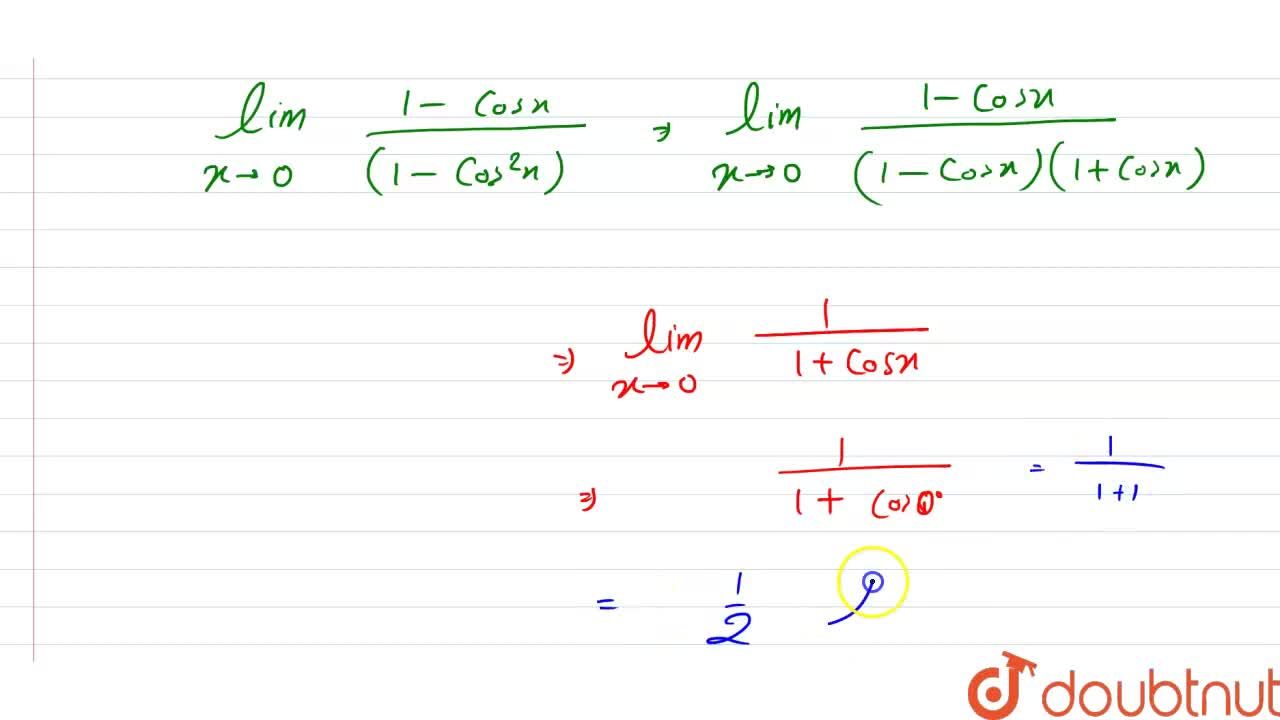 lim x→0 (1 - Cosx)/(1 - Cos²x) ⇒ lim x→0 (1 - Cosx)/((1 - Cosx)(1 + Cosx))
⇒ lim x→0 1/(1 + Cosx)
⇒ 1/(1 + Cos0°) = 1/(1+1)
= 1/2
doubtnut